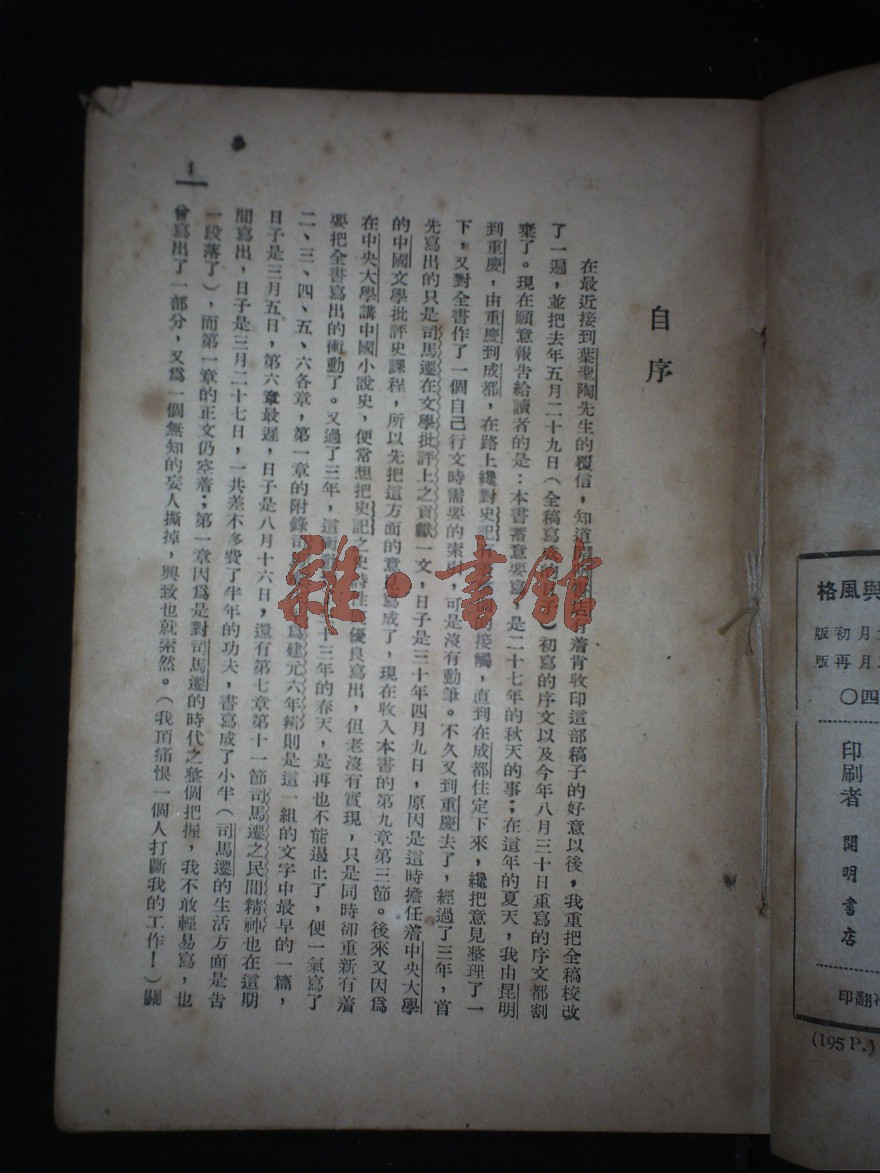 自序
在最近接到葉聖陶先生的覆信，知道開明書店有着肯收印這部稿子的好意以後，我重把全稿校改
了一遍，並把去年五月二十九日（全稿寫成的日子）初寫的序文以及今年八月三十日重寫的序文都割
棄了。現在願意報告給讀者的是：本書蓄意要寫，是二十七年的秋天的事；在這年的夏天，我由昆明
到重慶，由重慶到成都，在路上纔對史記 接觸，直到在成都住定下來，纔把意見整理了一
下，又對全書作了一個自己行文時需要的索引，可是沒有動筆。不久又到重慶去了，經過了三年，首
先寫出的只是司馬遷在文學批評上之貢獻一文，日子是三十年四月九日，原因是這時擔任着中央大學
的中國文學批評史課程，所以先把這方面的意見寫成了，現在收入本書的第九章第三節。後來又因為
在中央大學講中國小說史，便常想把史記之史詩性 優良寫出，但老沒有實現，只是同時卻重新有着
要把全書寫出的衝動了。又過了三年，這衝動 十三年的春天，是再也不能遏止了，便一氣寫了
二、三、四、五、六各章，第一章的附錄司馬 為建元六年辨則是這一組的文字中最早的一篇，
日子是三月五日，第六章最遲，日子是八月十六日，還有第七章第十一節司馬遷之民間精神也在這期
間寫出，日子是三月二十七日，一共差不多費了半年的功夫，書寫成了小半（司馬遷的生活方面是告
一段落了），而第一章的正文仍空着；第一章因為是對司馬遷的時代之整個把握，我不敢輕易寫，也
曾寫出了一部分，又為一個無知的妄人撕掉，興致也就索然。（我頂痛恨一個人打斷我的工作！）關
1
雜·書館
與風格
月初版
月再版
四〇
印刷者 開明書店
翻印
(195 P.)